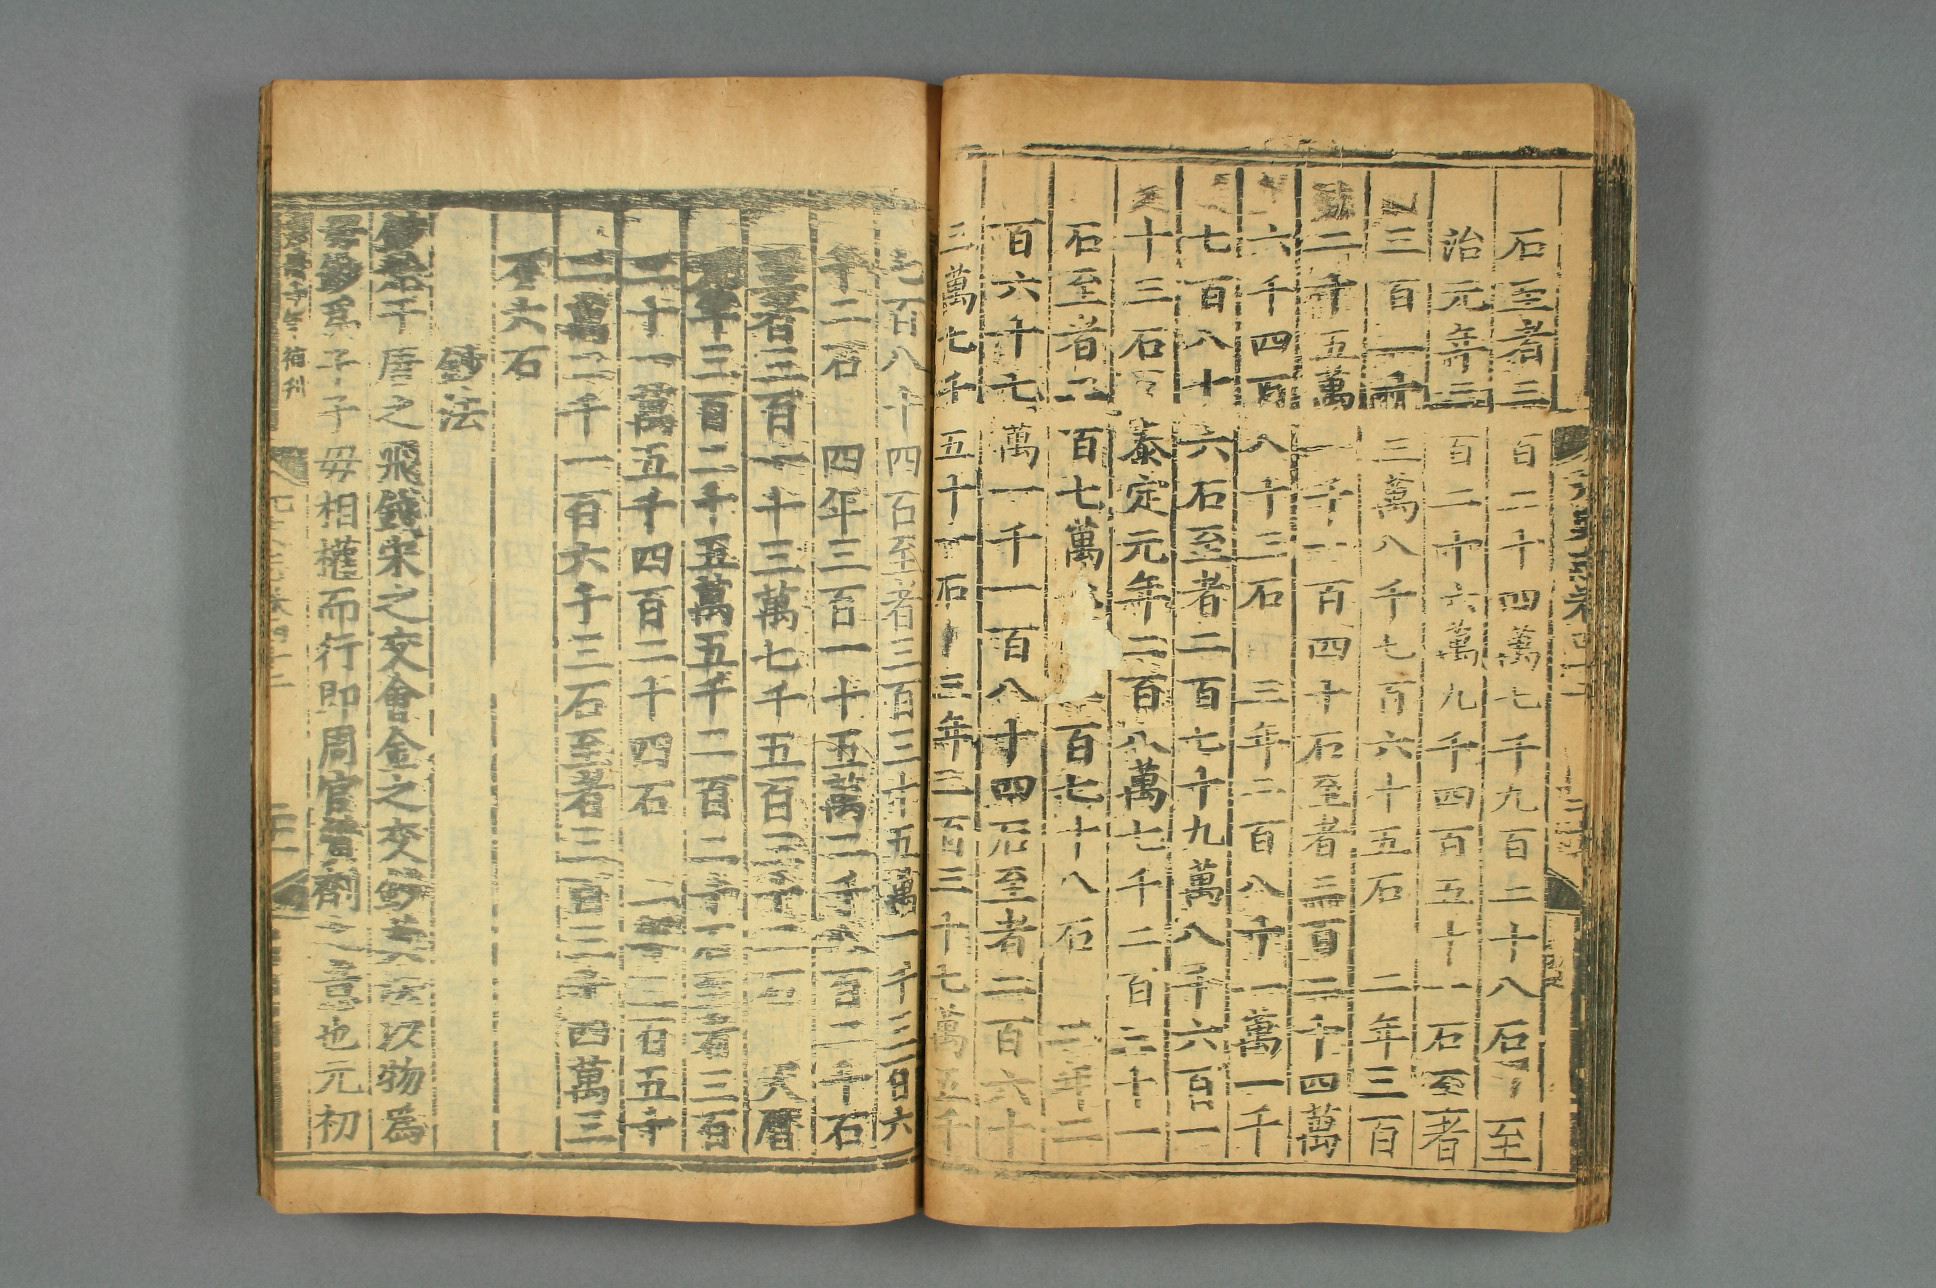 石至者三百二十四萬七千九百二十八石至
治元年三百二十六萬九千四百五十一石至者
三百二十三萬八千七百六十五石 二年三百
二十五萬一千一百四十石至者三百二十四萬
六千四百八十三石 三年二百八十一萬一千
七百八十六石至者二百七十九萬八千六百一
十三石 泰定元年二百八萬七千二百三十一
石至者二百七萬 百七十八石 二年二
百六十七萬一千一百八十四石至者二百六十
三萬七千五十一石 三年三百三十七萬五千
七百八十四石至者三百三十五萬一千三百六
十二石 四年三百一十五萬二千 百二十石
至者三百一十三萬七千五百三十二石 天曆
元年三百二十五萬五千二百二十石至者三百
二十一萬五千四百二十四石 二年三百五十
二萬二千一百六十三石至者三百三十四萬三
百六石
鈔法
鈔始于唐之飛錢宋之交會金之交鈔其法以物爲
母鈔爲子子母相權而行即周官質劑之意也元初
元史志卷四十二
二十一
補刊